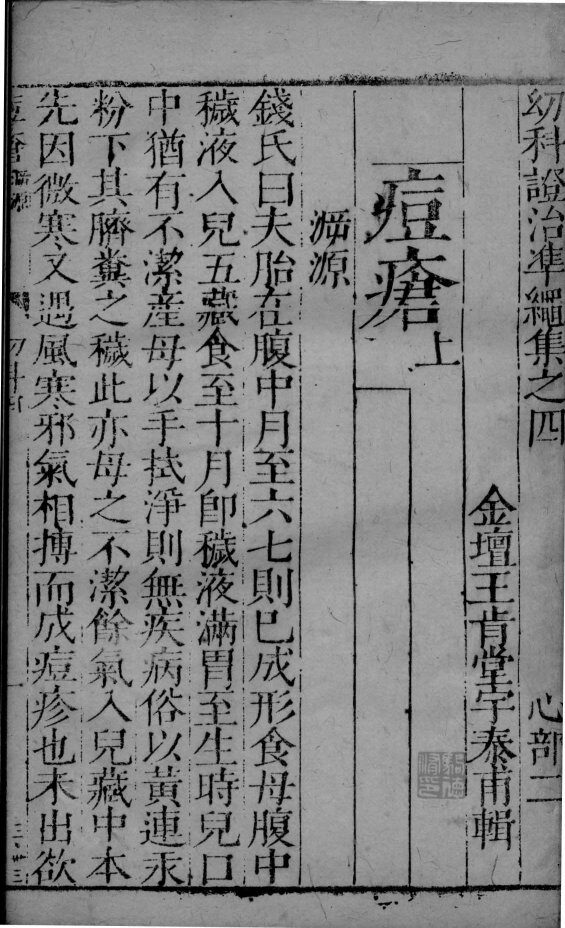 幼科證治準繩集之四　心部二
金壇王肯堂宇泰甫輯
痘瘡上
溯源
錢氏曰夫胎在腹中月至六七則已成形食母腹中
穢液入兒五藏食至十月卽穢液滿胃至生時兒口
中猶有不潔產母以手拭淨則無疾病俗以黃連汞
粉下其臍糞之穢此亦母之不潔餘氣入兒藏中本
先因微寒又遇風寒邪氣相搏而成痘疹也未出欲